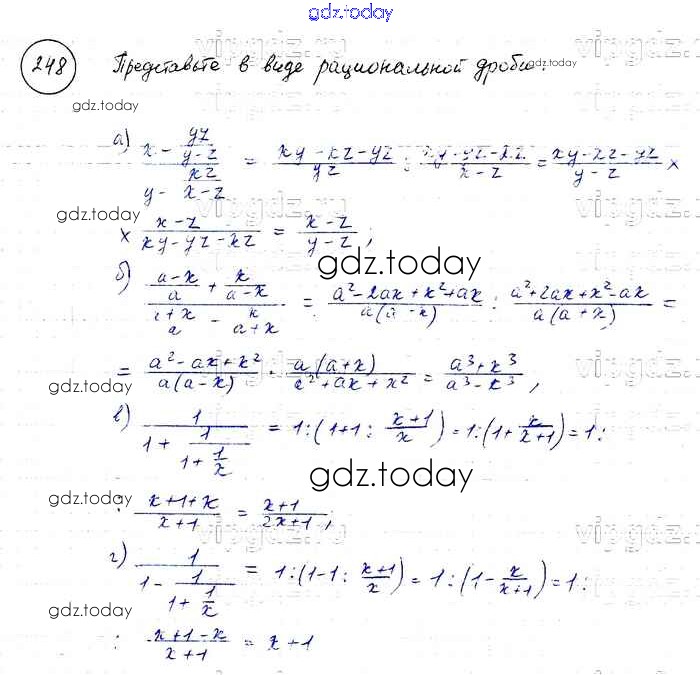 gdz.today
248 Представьте в виде рациональной дроби:
gdz.today
а) (x - yz/(y-z)) / (y - xz/(x-z)) = (xy-xz-yz)/yz : (xy-yz-xz)/(x-z) = (xy-xz-yz)/(y-z) ×
gdz.today
× (x-z)/(xy-yz-xz) = (x-z)/(y-z);
gdz.today
б) ((a-x)/a + x/(a-x)) / ((a+x)/a - x/(a+x)) = (a²-2ax+x²+ax)/(a(a-x)) : (a²+2ax+x²-ax)/(a(a+x)) =
= (a²-ax+x²)/(a(a-x)) · (a(a+x))/(a²+ax+x²) = (a³+x³)/(a³-x³),
gdz.today
в) 1/(1 + 1/(1 + 1/x)) = 1:(1+1: (x+1)/x) = 1:(1+ x/(x+1)) = 1:
gdz.today
gdz.today
: (x+1+x)/(x+1) = (x+1)/(2x+1);
г) 1/(1 - 1/(1 + 1/x)) = 1:(1-1: (x+1)/x) = 1:(1- x/(x+1)) = 1:
gdz.today
: (x+1-x)/(x+1) = x+1